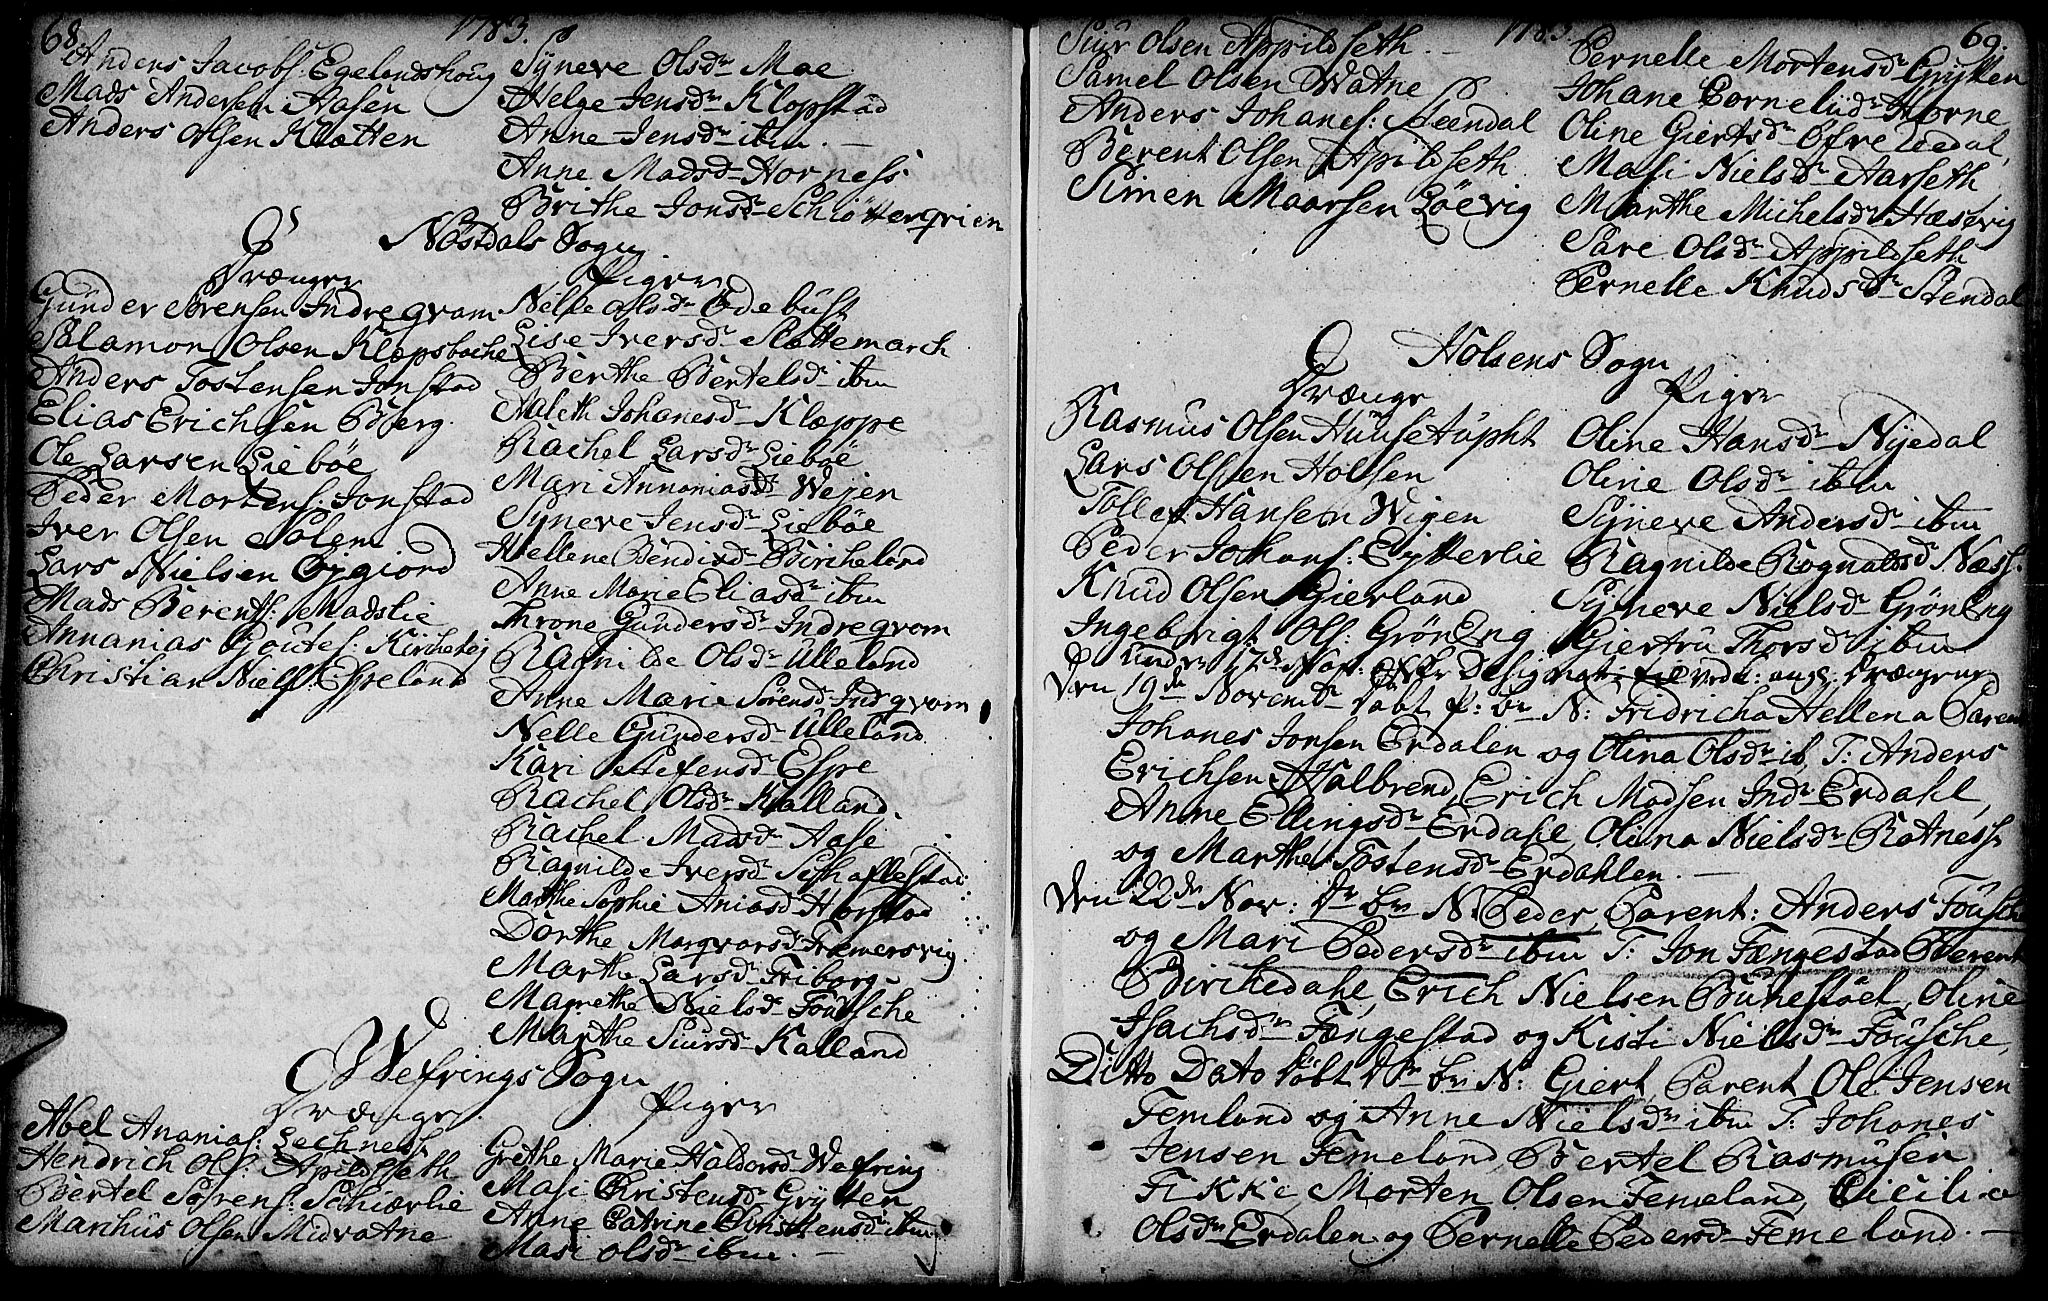 68.
1783.
Anders Jacobs: Egelandshoug
Mads Andersen Aasen
Anders Olsen Kletten
Syneve Olsdr Moe
Helge Jensdr Klopstad
Anne Jensdr ibm. —
Anne Madsdr Horness
Brithe Jonsdr Schlötteqrien
Nöstdals Sogn
Drænger
Gunder Sörensen Indregrom
Salamon Olsen Klæpsbache
Anders Tostensen Jonstad
Elias Erichsen Bjerg.
Ole Larsen Liebøe
Peder Mortens: Jonstad
Iver Olsen Solem
Lars Nielsen Öygiord
Mads Berents: Madslie
Annanias Goutes: Kirchetej
Christian Niels: Espeland
Piger
Nelle Olsdr Ödebust
Lise Iversdr Slettemarch
Berthe Bertelsdr ibm
Aaleth Johanesdr Klæppe
Rachel Larsdr Liebøe
Mari Annaniasdr Wejen
Syneve Jensdr Liebøe
Hellene Bendixdr Bircheland
Anne Marie Eliasdr ibm
Throne Gundersdr Indregrom
Ragnilde Olsdr Ulleland
Anne Marie Sörensdr Indgrom
Nelle Gundersdr Ulleland
Kari Stefensdr Espe
Rachel Olsdr Kalland
Rachel Madsdr Aase
Ragnilde Iversdr Schaflestad
Marthe Sophie Aniasdr Horstad
Dorthe Marqvarsdr Tramersvig
Marthe Larsdr Friborg
Marethe Nielsdr Föusche
Marthe Siursdr Kalland
Wefrings Sogn
Drænger
Abel Ananias: Lechness
Hendrich Ols: Apildseth
Bertel Sörens: Schierlie
Marchus Olsen Midvatne
Piger
Grethe Marie Haldorsdr Wefring
Masi Christensdr Grytten
Anne Catrine Christensdr ibm
Masi Olsdr ibm. —
1783.
69.
Siur Olsen Appildseth. —
Samel Olsen Watne
Anders Johanes: Steendal
Berent Olsen Apildseth
Simen Maarsen Löevig
Pernelle Mortensdr Grytten
Johane Corneliidr Horne
Oline Giertsdr Öfreliedal,
Masi Nielsdr Aarseth
Marthe Michelsdr Hæsvig
Sare Olsdr Appildseth
Pernelle Knudsdr Stendal
Holsens Sogn
Drænge
Rasmus Olsen Huusetupht
Lars Olssen Holsen
Tollef Hansen Wigen
Peder Johans: Eytterlie
Knud Olsen Gierland
Ingebrigt Ols: GrönEng
Piger
Oline Hansdr Nyedal
Oline Olsdr ibm
Syneve Andersdr ibm
Ragnilde Rognaldsdr Næss.
Syneve Nielsdr GrönEng
Giertru Thorsdr ibm
Under 17de Nov:
Den 19de Novemb. döbt N: Fridricha Hellena Parent
Johanes Jonsen Erdalen og Olina Olsdr ib, T: Anders
Erichsen Halbrend, Erich Madsen Indr Erdahl,
Anne Ellingsdr Erdahl, Olina Nielsdr Ratness
og Marthe Tostensdr Erdahlen. —
Den 22de Nov: N: Peder, Parent: Anders Föusche
og Mari Pedersdr ibm T: Jon Fængestad Berent
Birchedahl, Erich Nielsen Bunestöel, Oline
Isachsdr Fængestad og Kisti Nielsdr Föusche,
Ditto Dato döbt N: Giert, Parent Ole Jensen
Femeland og Anne Nielsdr ibm T: Johanes
Jensen Femeland, Bertel Rasmusen
Fikke, Morten Olsen Femeland, Cicilia
Olsdr Erdalen og Pernelle Pedersdr Femeland. —